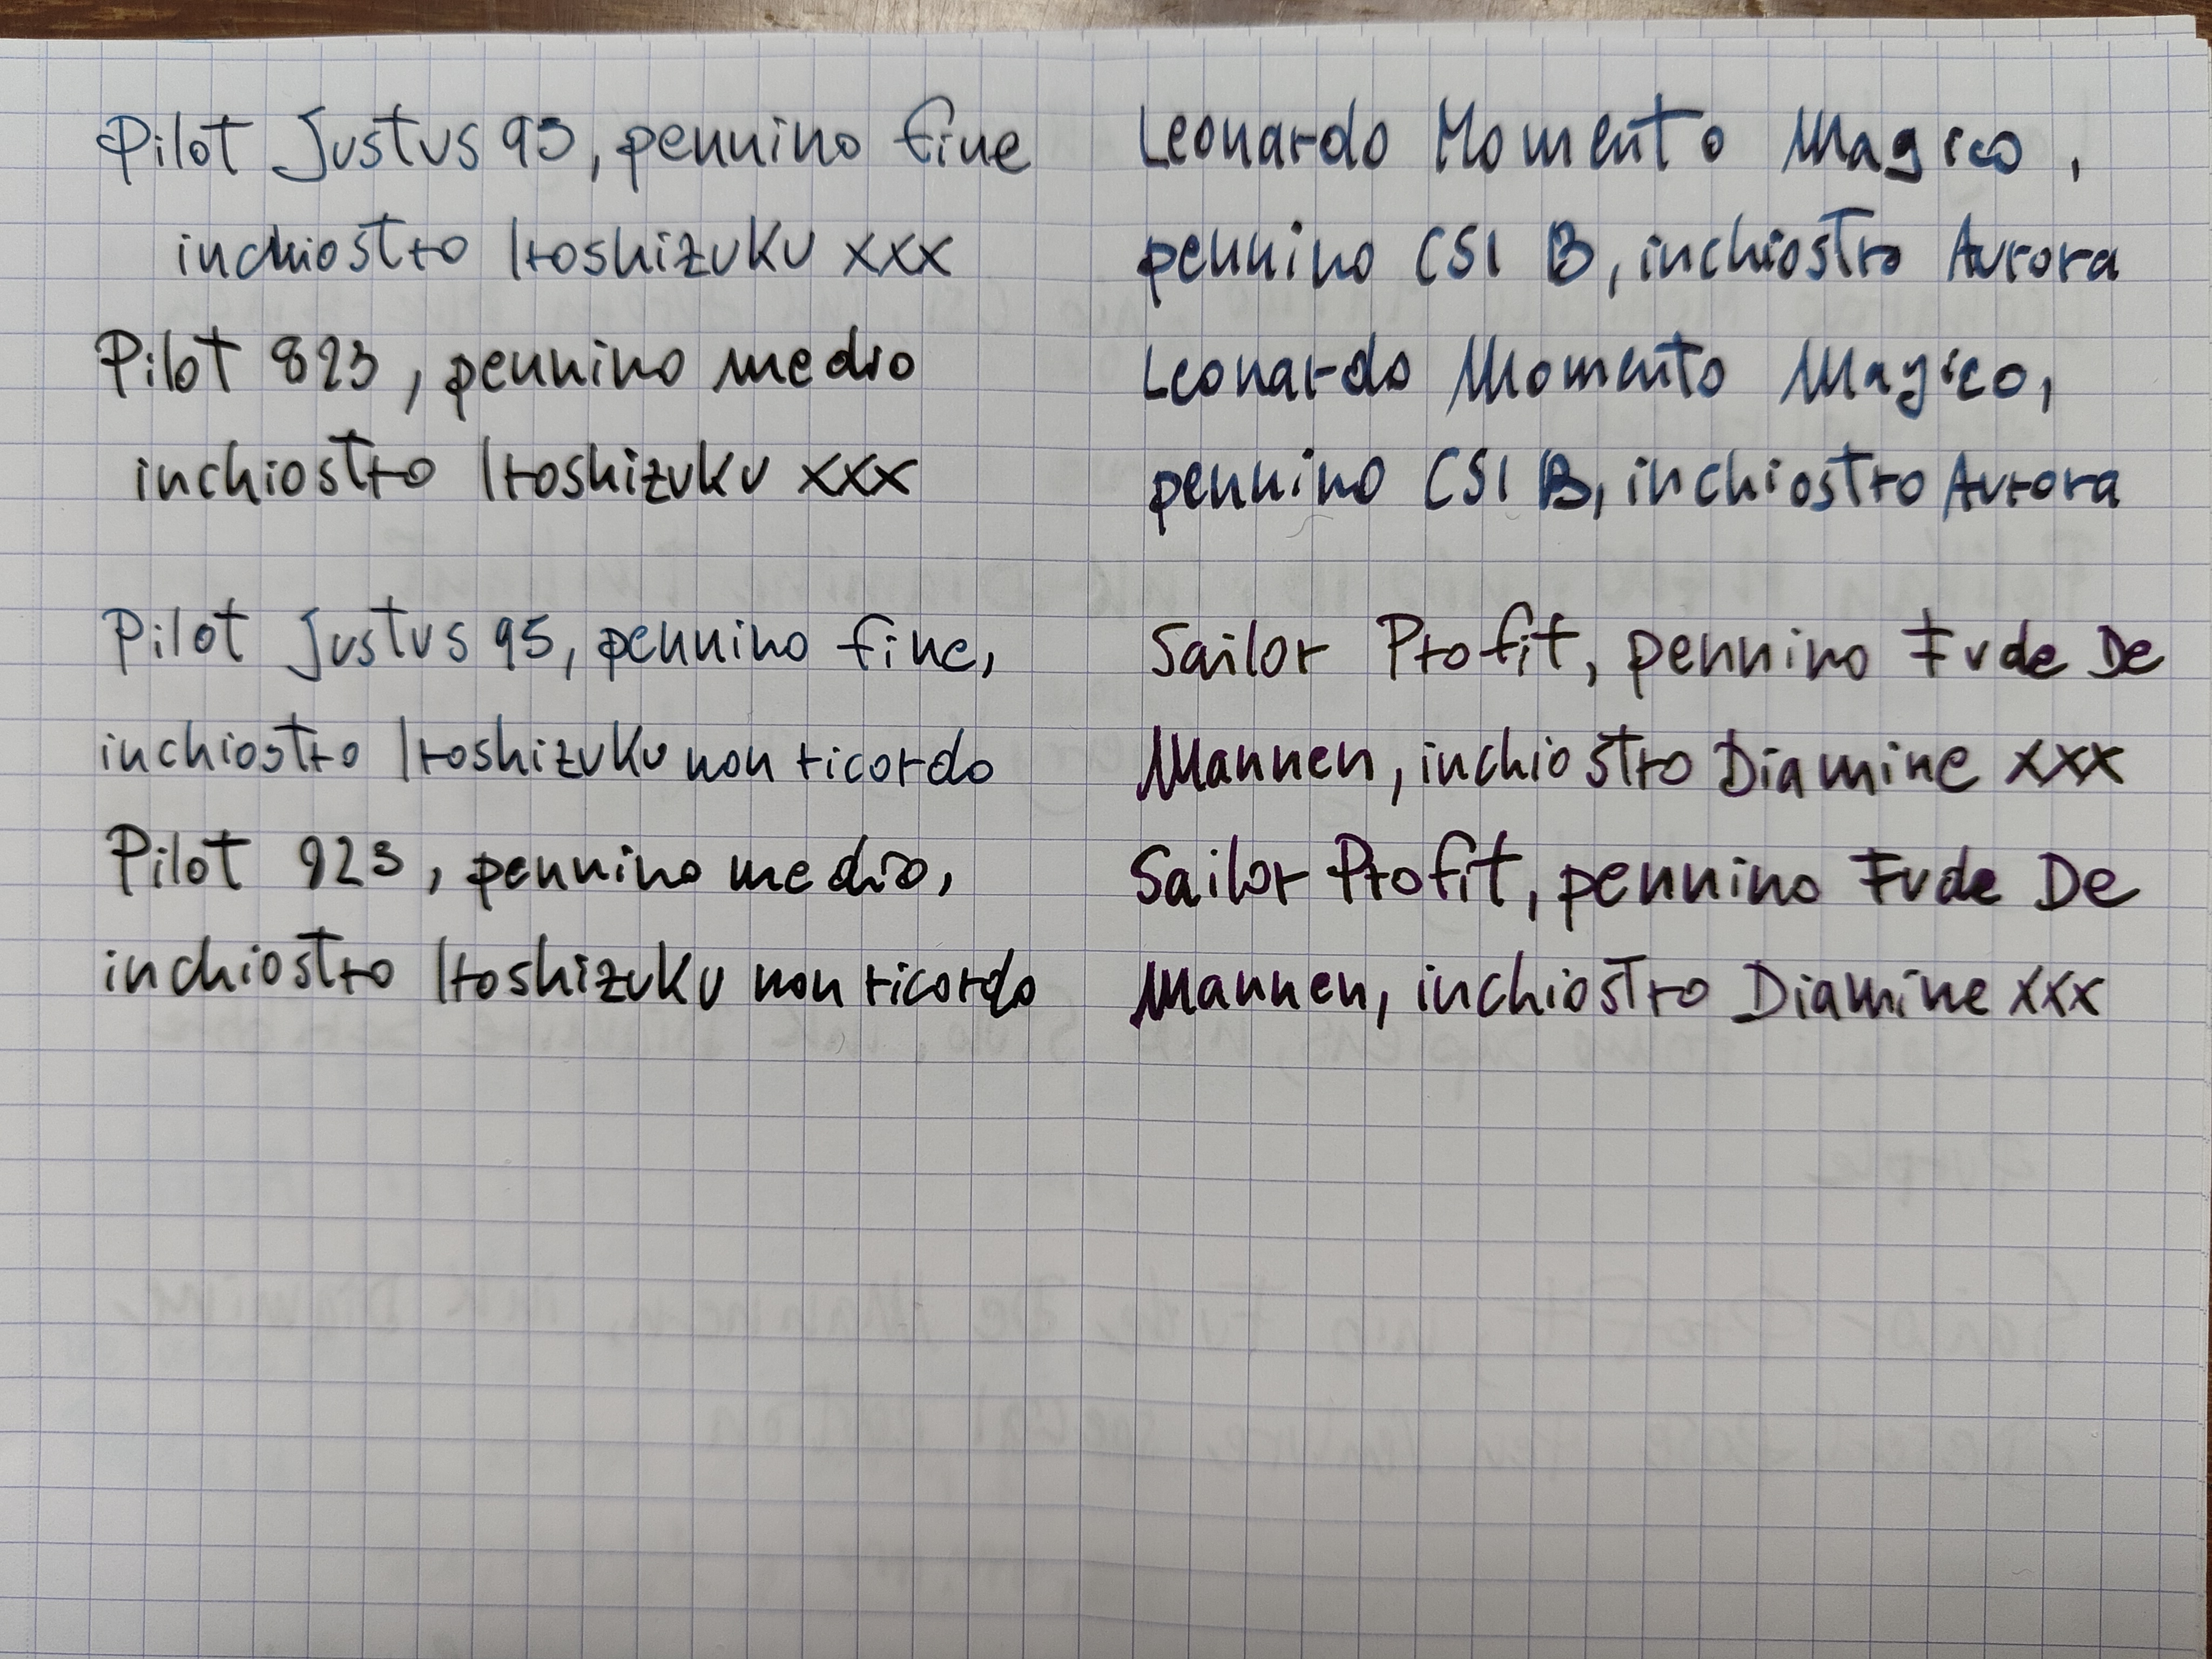 Pilot Justus 95, pennino fine
inchiostro Iroshizuku xxx
Pilot 823, pennino medio
inchiostro Iroshizuku xxx
Pilot Justus 95, pennino fine,
inchiostro Iroshizuku non ricordo
Pilot 823, pennino medio,
inchiostro Iroshizuku non ricordo
Leonardo Momento Magico,
pennino CSI B, inchiostro Aurora
Leonardo Momento Magico,
pennino CSI B, inchiostro Aurora
Sailor Profit, pennino Fude De
Mannen, inchiostro Diamine xxx
Sailor Profit, pennino Fude De
Mannen, inchiostro Diamine xxx